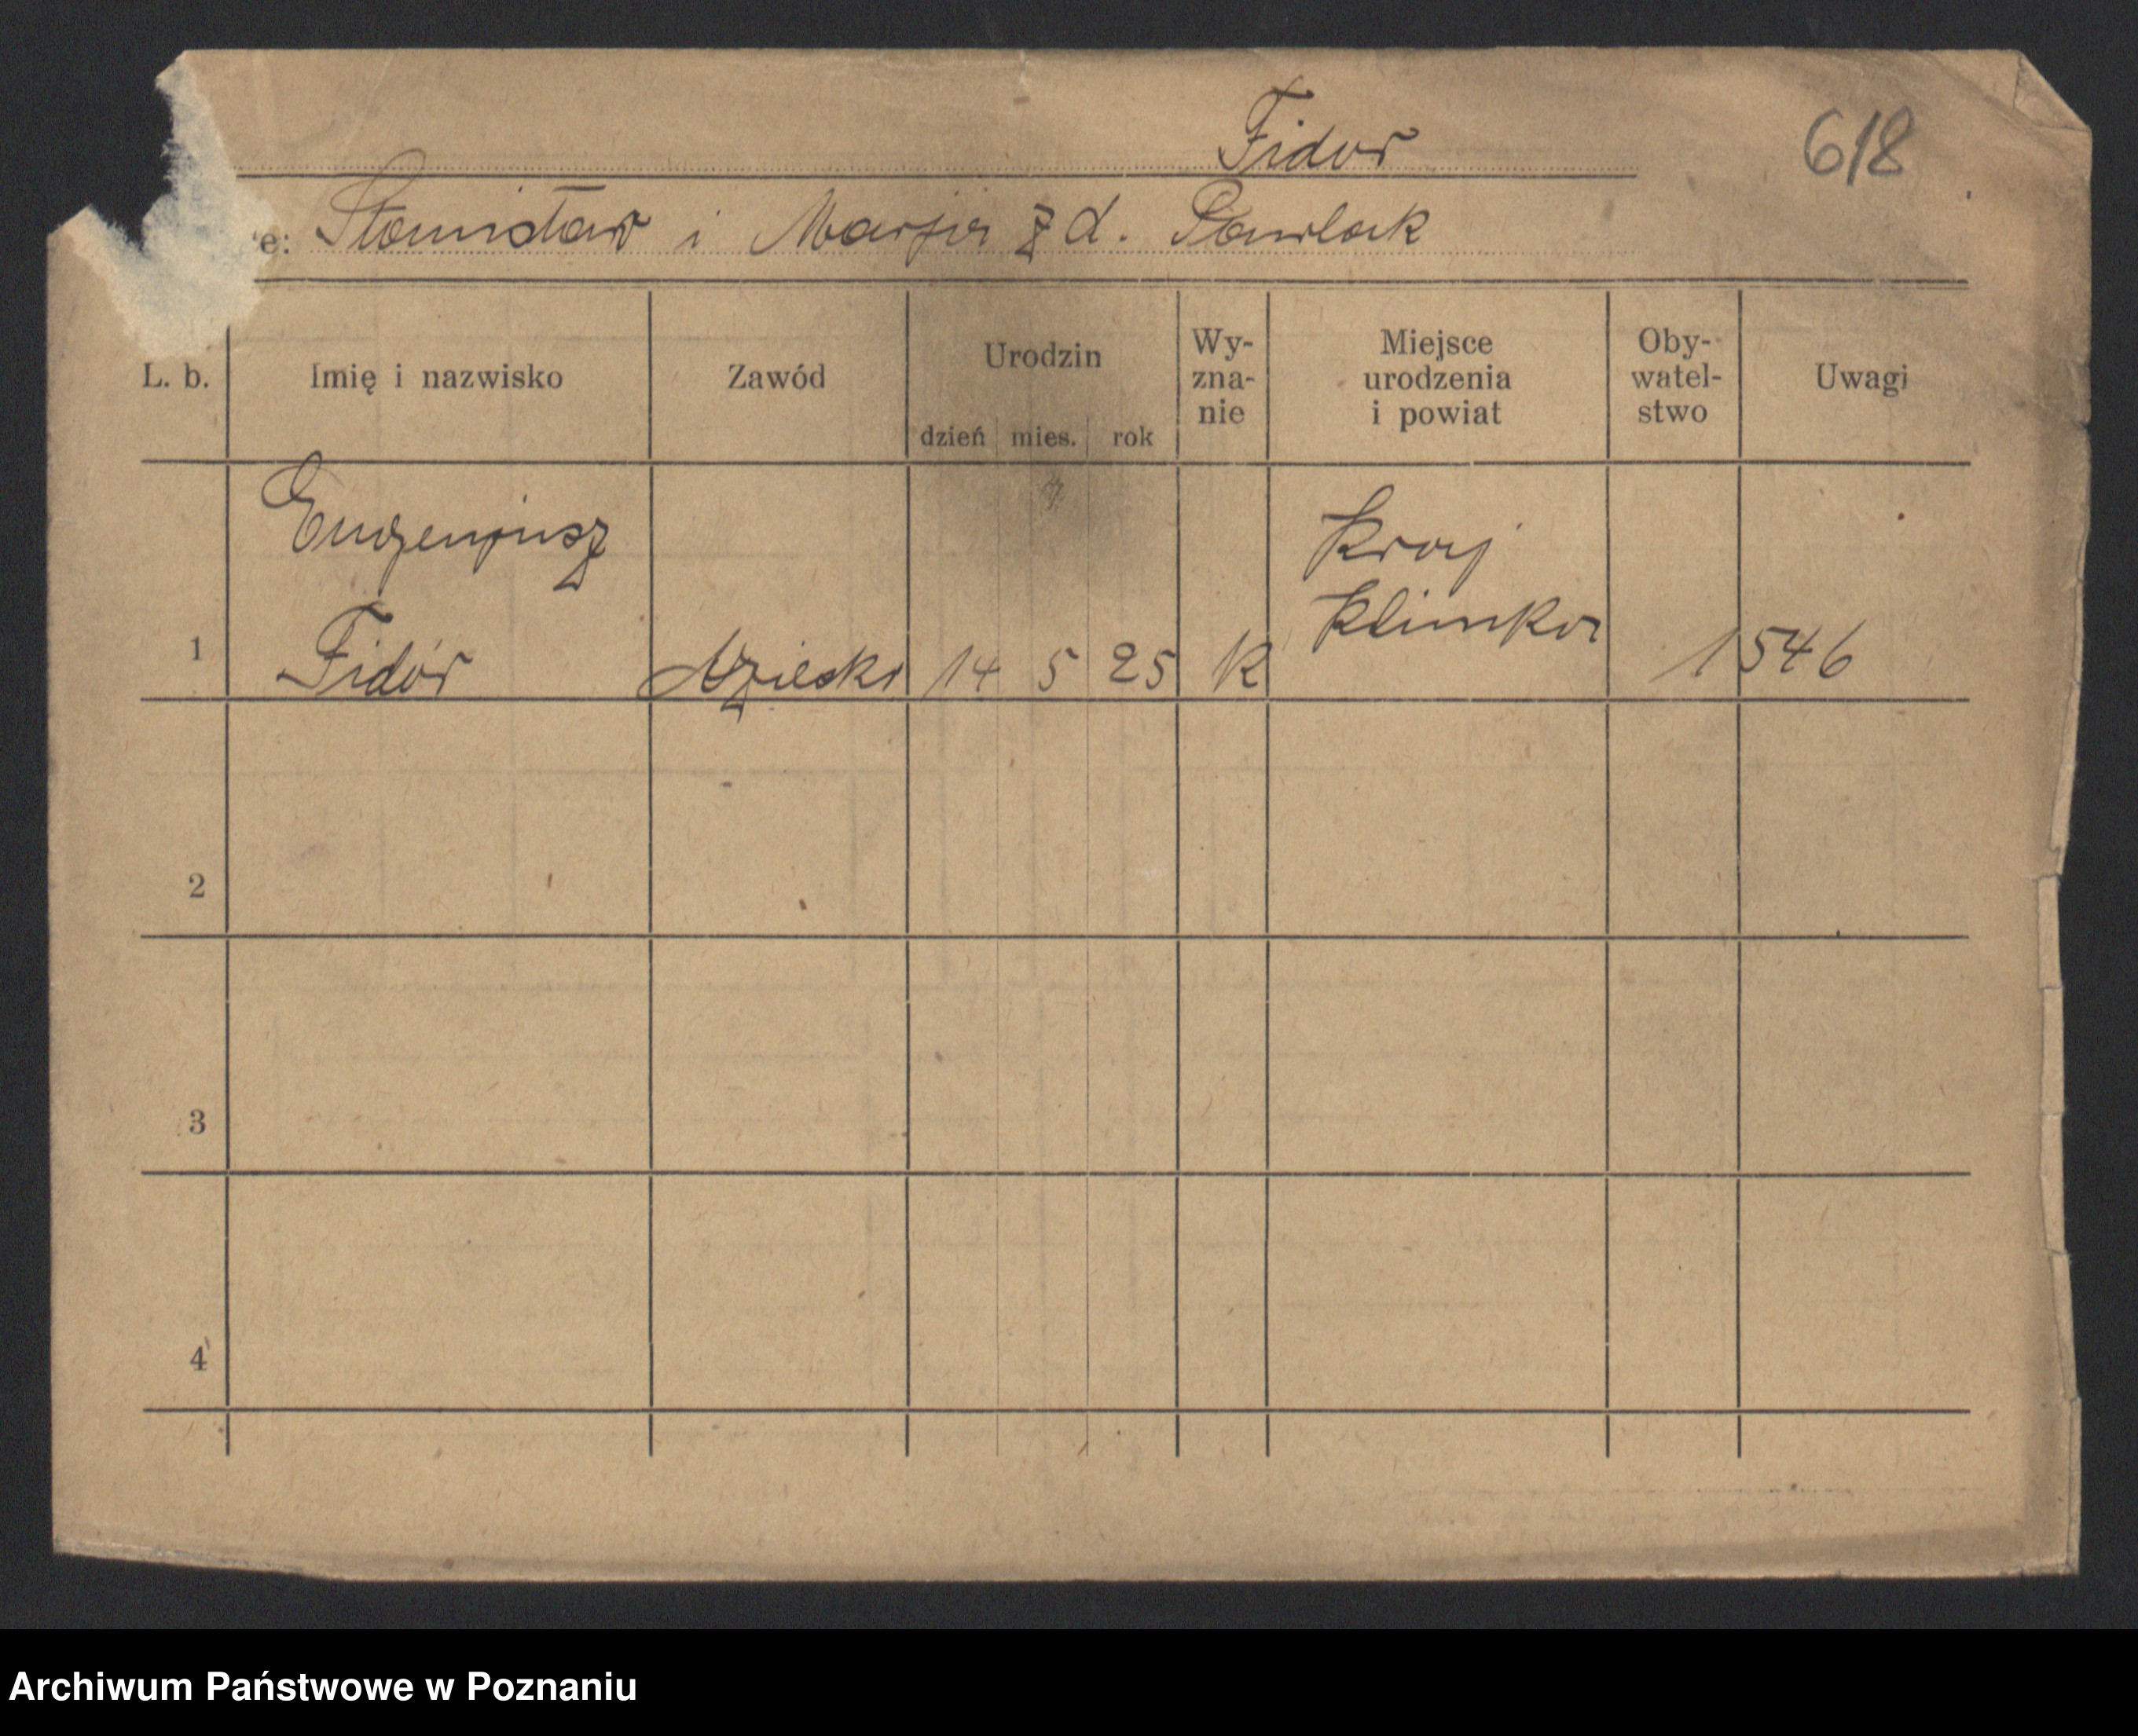 Fidor
618
e: Stanisław i Marja z d. Pawlak
L. b.
Imię i nazwisko
Zawód
Urodzin
dzień mies. rok
Wy-
zna-
nie
Miejsce
urodzenia
i powiat
Oby-
watel-
stwo
Uwagi
Eugenjusz
Kraj
Klimka
1 Fidór dziecko 14 5 25 K 1546
2
3
4
Archiwum Państwowe w Poznaniu